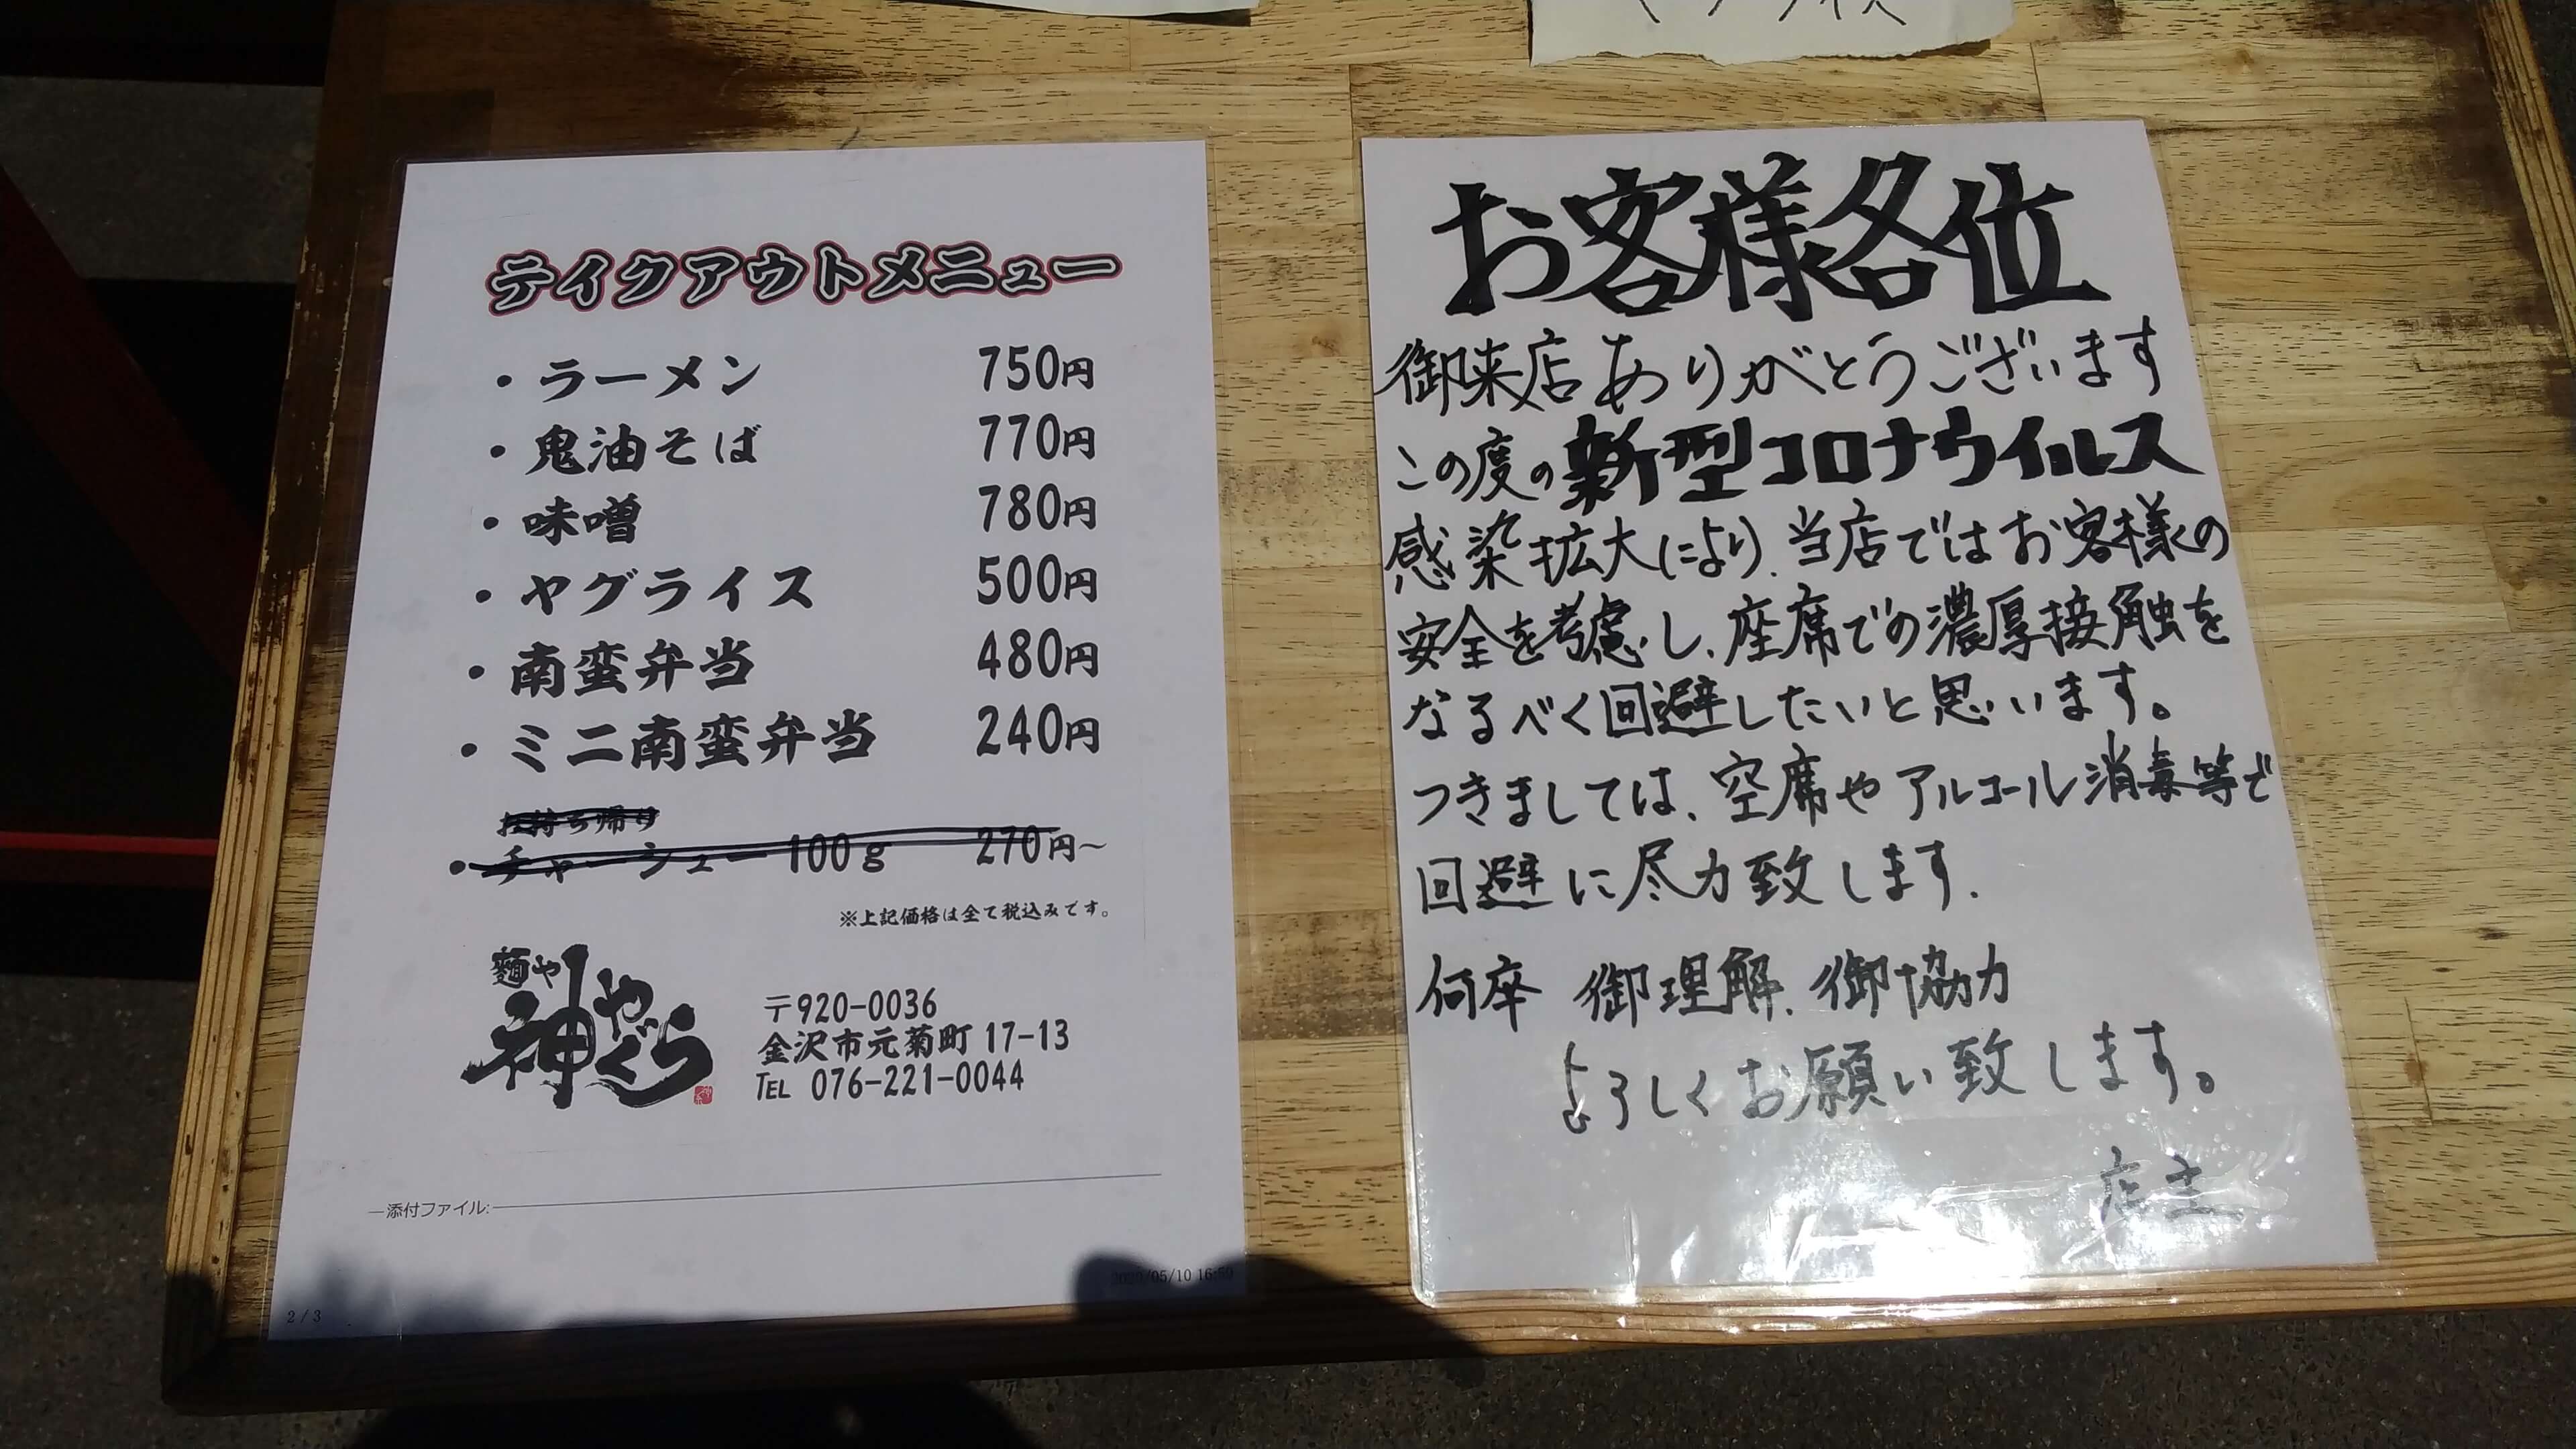 テイクアウトメニュー
・ラーメン 750円
・鬼油そば 770円
・味噌 780円
・ヤグライス 500円
・南蛮弁当 480円
・ミニ南蛮弁当 240円
お持ち帰り
・チャーシュー 100g 270円～
※上記価格は全て税込みです。
麺や
神やぐら
〒920-0036
金沢市元菊町 17-13
TEL 076-221-0044
添付ファイル:
2 / 3
お客様各位
御来店ありがとうございます
この度の新型コロナウイルス
感染拡大により、当店ではお客様の
安全を考慮し、座席での濃厚接触を
なるべく回避したいと思います。
つきましては、空席やアルコール消毒等で
回避に尽力致します.
何卒 御理解、御協力
よろしくお願い致します。
店主